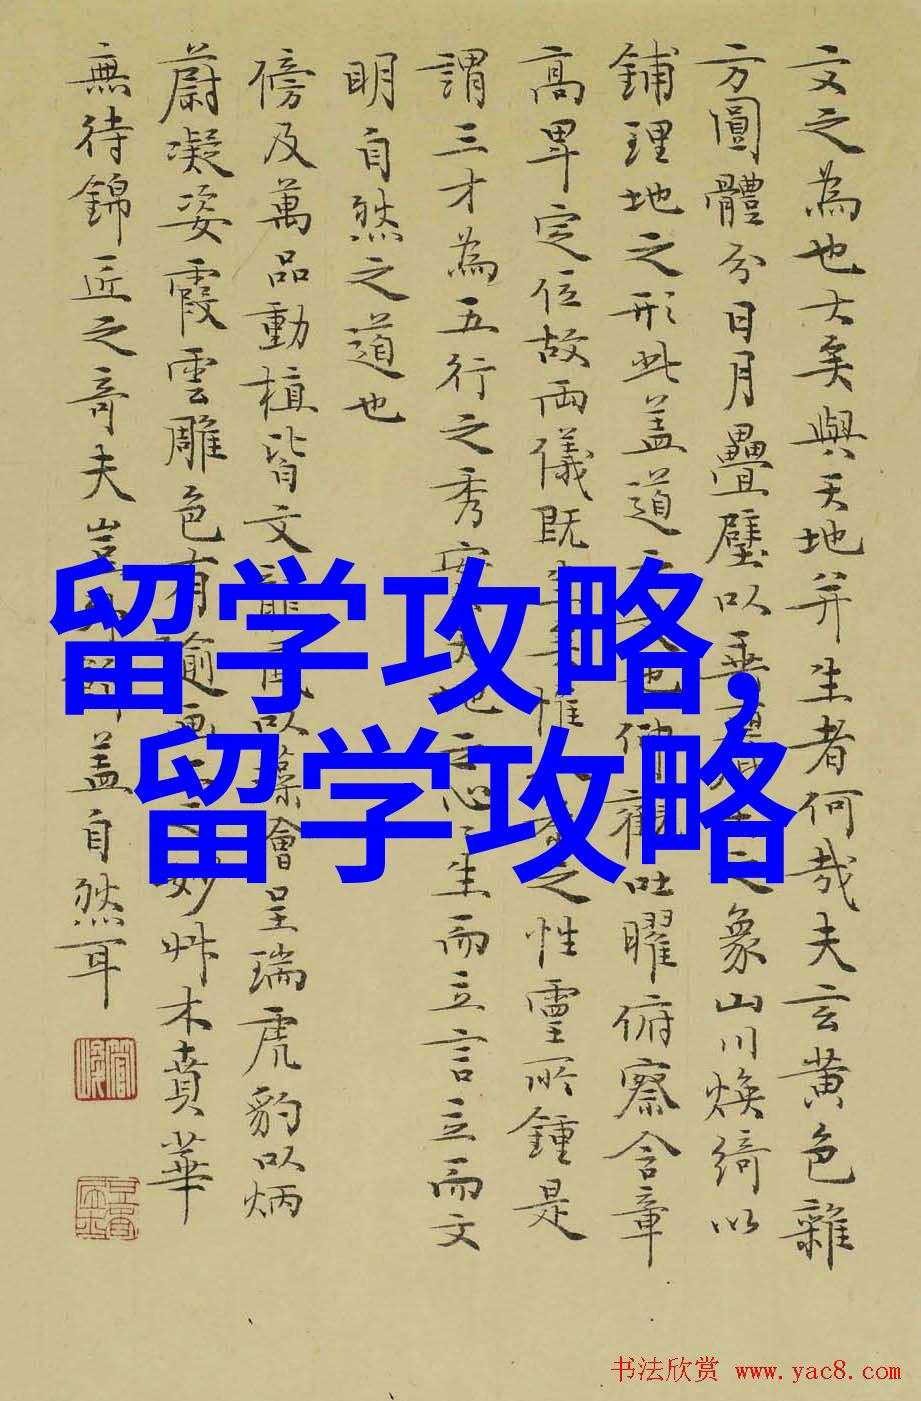 文之為也大矣與天地并生者何哉夫玄黄色雜
方圓體分日月疊璧以垂麗天之象山川煥綺以
鋪理地之形此盖道之文也仰觀吐曜俯察含章
高卑定位故兩儀既生矣惟人參之性靈所鍾是
謂三才為五行之秀實天地之心心生而立言立而文
明自然之道也
傍及萬品動植皆文龍鳳以藻繪呈瑞虎豹以炳
蔚凝姿霞雲雕色有踰畫工之妙艸木賁華
無待錦匠之奇夫豈外飾盖自然耳
留学攻略,
留学攻略
书法欣赏 www.yac8.com